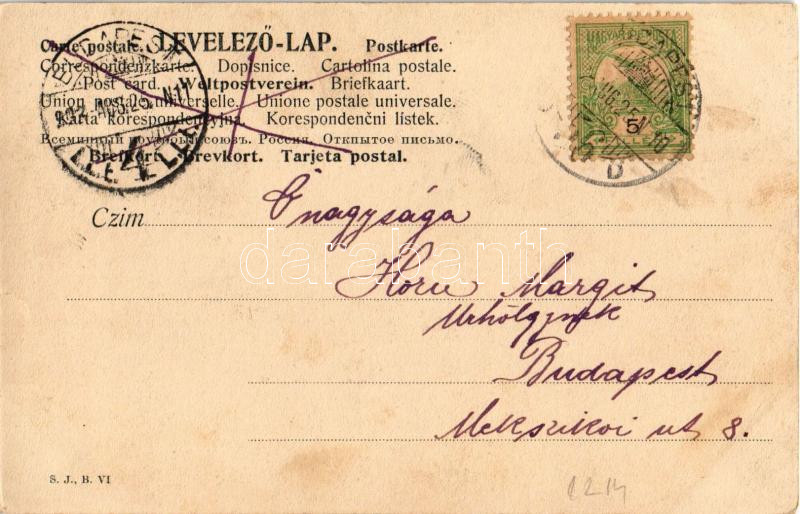 Carte postale. LEVELEZŐ-LAP. Postkarte.
Correspondenzkarte. Dopisnice. Cartolina postale.
Post card. Weltpostverein. Briefkaart.
Union postale universelle. Unione postale universale.
Karta korespondencyjna. Korespondenční lístek.
Всемирный почтовый союзъ. Россия. Открытое письмо.
Brefkort. Brevkort. Tarjeta postal.
BUDAPEST
MAGYAR
5
D
Czim Őnagysága
darabanth
Margit
Urhölgynek
Budapest
Mekszikoi ut 8.
S. J., B. VI
1214